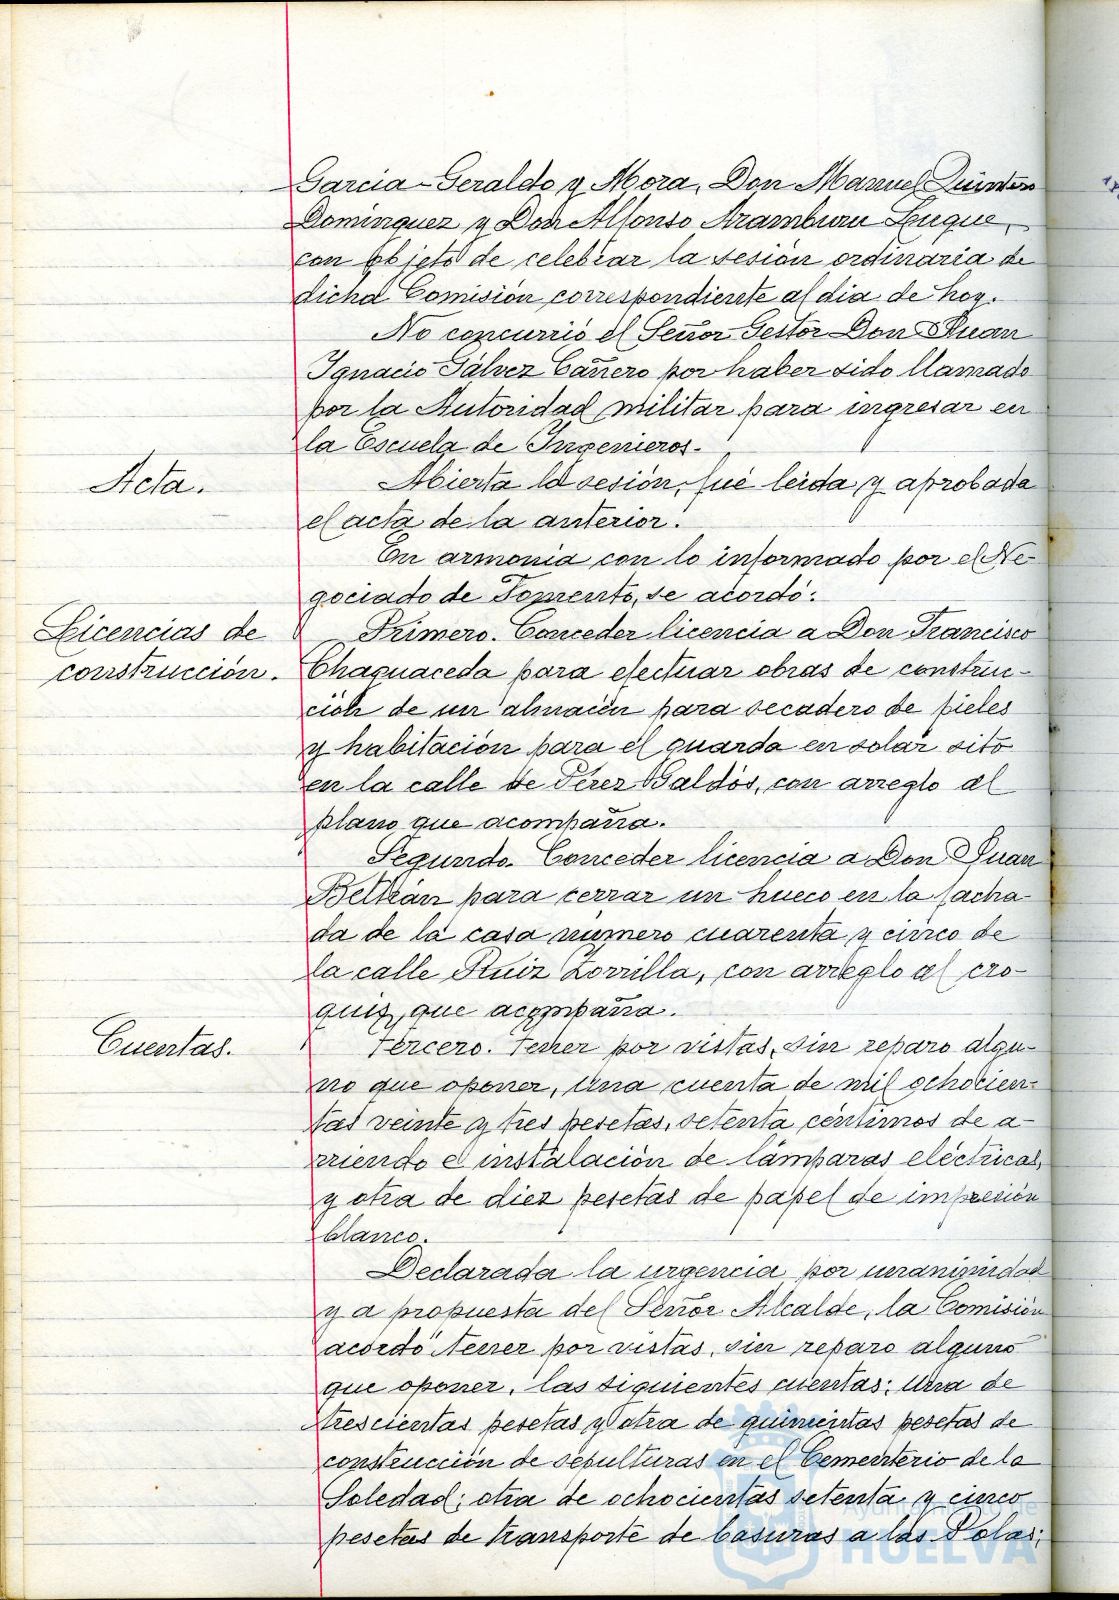 Garcia-Geraldo y Mora, Don Manuel Quintero
Dominguez y Don Alfonso Aramburu Luque,
con objeto de celebrar la sesión ordinaria de
dicha Comisión correspondiente al dia de hoy.
No concurrió el Señor Gestor Don Juan
Ignacio Gálvez Cañero por haber sido llamado
por la Autoridad militar para ingresar en
la Escuela de Ingenieros.
Acta.
Abierta la sesión, fué leida y aprobada
el acta de la anterior.
En armonia con lo informado por el Ne-
gociado de Fomento, se acordó:
Licencias de
construcción.
Primero. Conceder licencia a Don Francisco
Chaguaceda para efectuar obras de construc-
ción de un almacén para secadero de pieles
y habitación para el guarda en solar sito
en la calle de Pérez Galdós, con arreglo al
plano que acompaña.
Segundo. Conceder licencia a Don Juan
Beltrán para cerrar un hueco en la facha-
da de la casa número cuarenta y cinco de
la calle Ruiz Zorrilla, con arreglo al cro-
quis, que acompaña.
Cuentas.
Tercero. Tener por vistas, sin reparo algu-
no que oponer, una cuenta de mil ochocien-
tas veinte y tres pesetas, setenta céntimos de a-
rriendo e instalación de lámparas eléctricas,
y otra de diez pesetas de papel de impresión
blanco.
Declarada la urgencia por unanimidad
y a propuesta del Señor Alcalde, la Comisión
acordó tener por vistas, sin reparo alguno
que oponer, las siguientes cuentas: Una de
trescientas pesetas y otra de quinientas pesetas de
construcción de sepulturas en el Cementerio de la
Soledad; otra de ochocientas setenta y cinco
pesetas de transporte de basuras a las Polas;
Ayuntamiento de
HUELVA